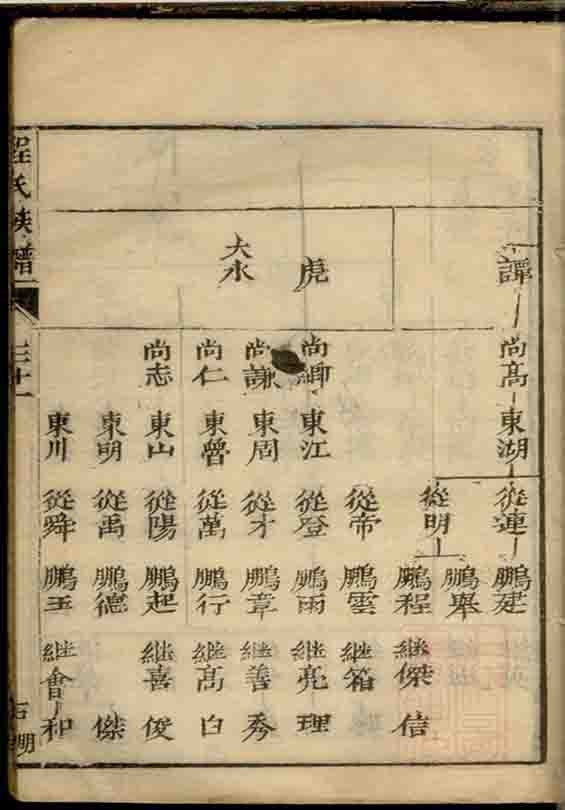 譚 尚高 東湖 從連 鵬建
鵬舉
從明 鵬程 継傑 信
從帝 鵬雲 継箱
虎 尚卿 東江 從登 鵬雨 継亮 理
尚謙 東周 從才 鵬章 継善 秀
大水 尚仁 東魯 從萬 鵬行 継高 白
尚志 東山 從陽 鵬起 継喜 俊
東明 從禹 鵬德 傑
東川 從舜 鵬玉 継會 和
程氏族譜 三十一